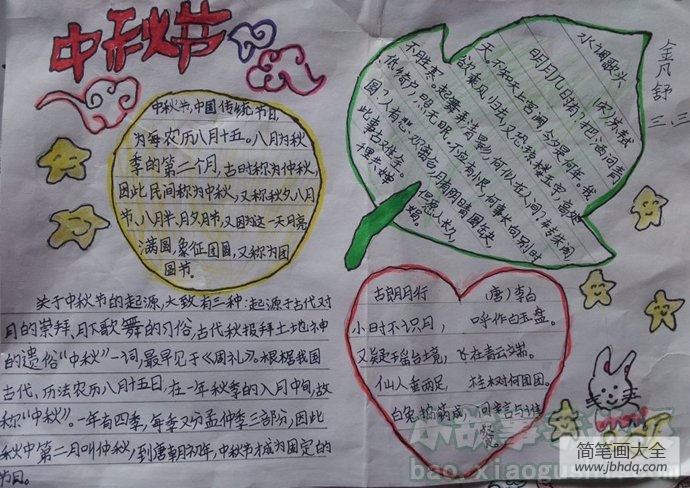 中秋节
中秋节,中国传统节日,
为每农历八月十五。八月为秋
季的第二个月,古时称为仲秋,
因此民间称为中秋,又称秋夕、八月
节、八月半、月夕、月节,又因为这一天月亮
满圆,象征团圆,又称为团
圆节。
关于中秋节的起源,大致有三种:起源于古代对
月的崇拜、月下歌舞的习俗,古代秋报拜土地神
的遗俗“中秋”一词,最早见于《周礼》。根据我国
古代、历法农历八月十五日,在一年秋季的八月中旬,故
称“中秋”。一年有四季,每季又分孟仲季三部分,因此
秋中第二月叫仲秋,到唐朝初年,中秋节才成为固定的
节日。
水调歌头
(宋)苏轼
明月几时有?把酒问青
天。不知天上宫阙,今夕是何年。我
欲乘风归去,又恐琼楼玉宇,高处
不胜寒。起舞弄清影,何似在人间?转朱阁
低绮户,照无眠。不应有恨,何事长向别时
圆?人有悲欢离合,月有阴晴圆缺,
此事古难全。但愿人长久,
千里共婵
娟。
金凡舒
三.三
古朗月行 (唐)李白
小时不识月, 呼作白玉盘。
又疑瑶台镜, 飞在青云端。
仙人垂两足, 桂树何团团。
白兔捣药成, 问言与谁
餐。
小故事
bao.xiaogushi
简笔画大全
www.jbhdq.com